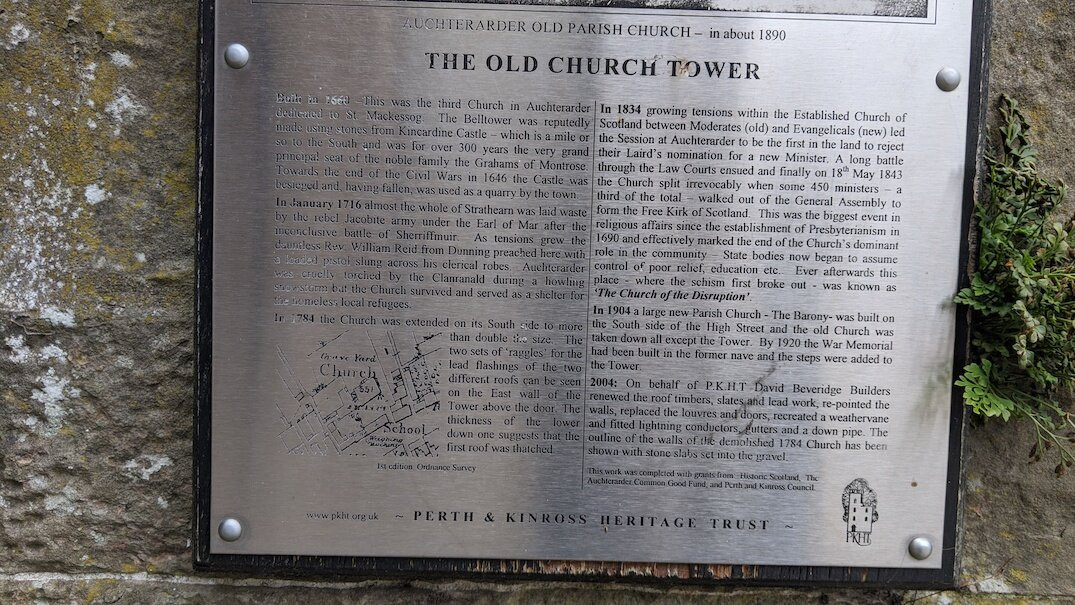 AUCHTERARDER OLD PARISH CHURCH – in about 1890
THE OLD CHURCH TOWER
Built in This was the third Church in Auchterarder
dedicated to St Mackessog. The Belltower was reputedly
made using stones from Kincardine Castle – which is a mile or
so to the South and was for over 300 years the very grand
principal seat of the noble family the Grahams of Montrose.
Towards the end of the Civil Wars in 1646 the Castle was
besieged and, having fallen, was used as a quarry by the town.
In January 1716 almost the whole of Strathearn was laid waste
by the rebel Jacobite army under the Earl of Mar after the
inconclusive battle of Sherriffmuir. As tensions grew the
dauntless Rev. William Reid from Dunning preached here with
a loaded pistol slung across his clerical robes. Auchterarder
was cruelly torched by the Clanranald during a howling
snowstorm but the Church survived and served as a shelter for
the homeless local refugees.
In 1784 the Church was extended on its South side to more
than double the size. The
two sets of 'raggles' for the
lead flashings of the two
different roofs can be seen
on the East wall of the
Tower above the door. The
thickness of the lower
down one suggests that the
first roof was thatched.
Grave Yard
Church
School
Weighing
Machine
1st edition. Ordnance Survey
In 1834 growing tensions within the Established Church of
Scotland between Moderates (old) and Evangelicals (new) led
the Session at Auchterarder to be the first in the land to reject
their Laird's nomination for a new Minister. A long battle
through the Law Courts ensued and finally on 18th May 1843
the Church split irrevocably when some 450 ministers – a
third of the total – walked out of the General Assembly to
form the Free Kirk of Scotland. This was the biggest event in
religious affairs since the establishment of Presbyterianism in
1690 and effectively marked the end of the Church's dominant
role in the community – State bodies now began to assume
control of poor relief, education etc. Ever afterwards this
place - where the schism first broke out - was known as
'The Church of the Disruption'.
In 1904 a large new Parish Church - The Barony- was built on
the South side of the High Street and the old Church was
taken down all except the Tower. By 1920 the War Memorial
had been built in the former nave and the steps were added to
the Tower.
2004: On behalf of P.K.H.T David Beveridge Builders
renewed the roof timbers, slates and lead work, re-pointed the
walls, replaced the louvres and doors, recreated a weathervane
and fitted lightning conductors, gutters and a down pipe. The
outline of the walls of the demolished 1784 Church has been
shown with stone slabs set into the gravel.
This work was completed with grants from: Historic Scotland, The
Auchterarder Common Good Fund, and Perth and Kinross Council.
www.pkht.org.uk ~ PERTH & KINROSS HERITAGE TRUST ~
PKHT